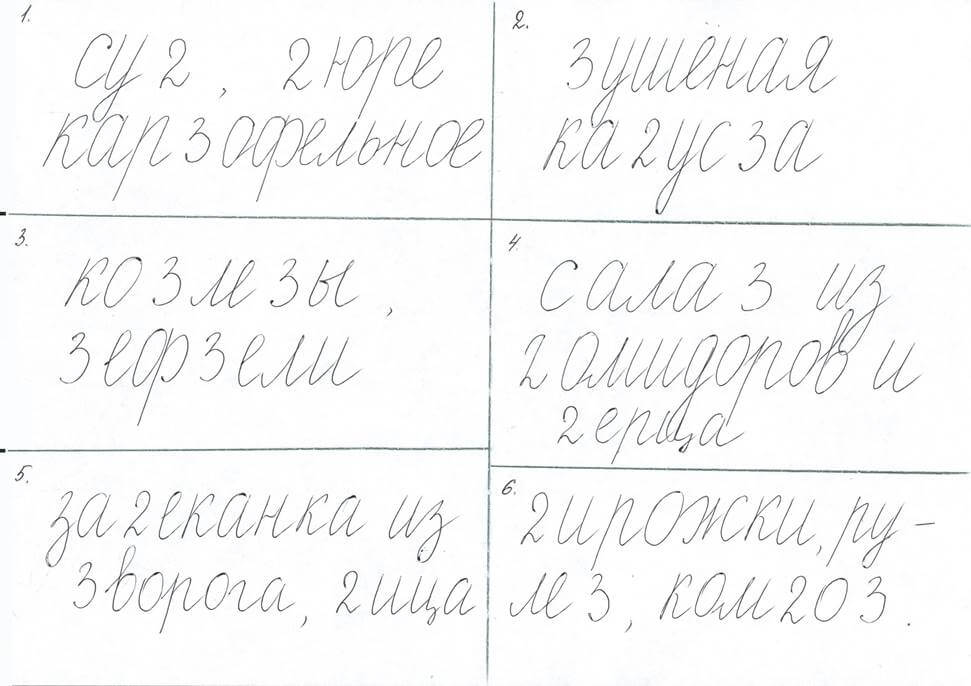 1.
су2, 2юре
кар3офельное
2.
3ушёная
ка2ус3а
3.
ко3ле3ы,
3еф3ели
4.
сала3 из
2омидоров и
2ерца
5.
за2еканка из
3ворога, 2ица
6.
2ирожки, ру-
ле3, ком2о3.